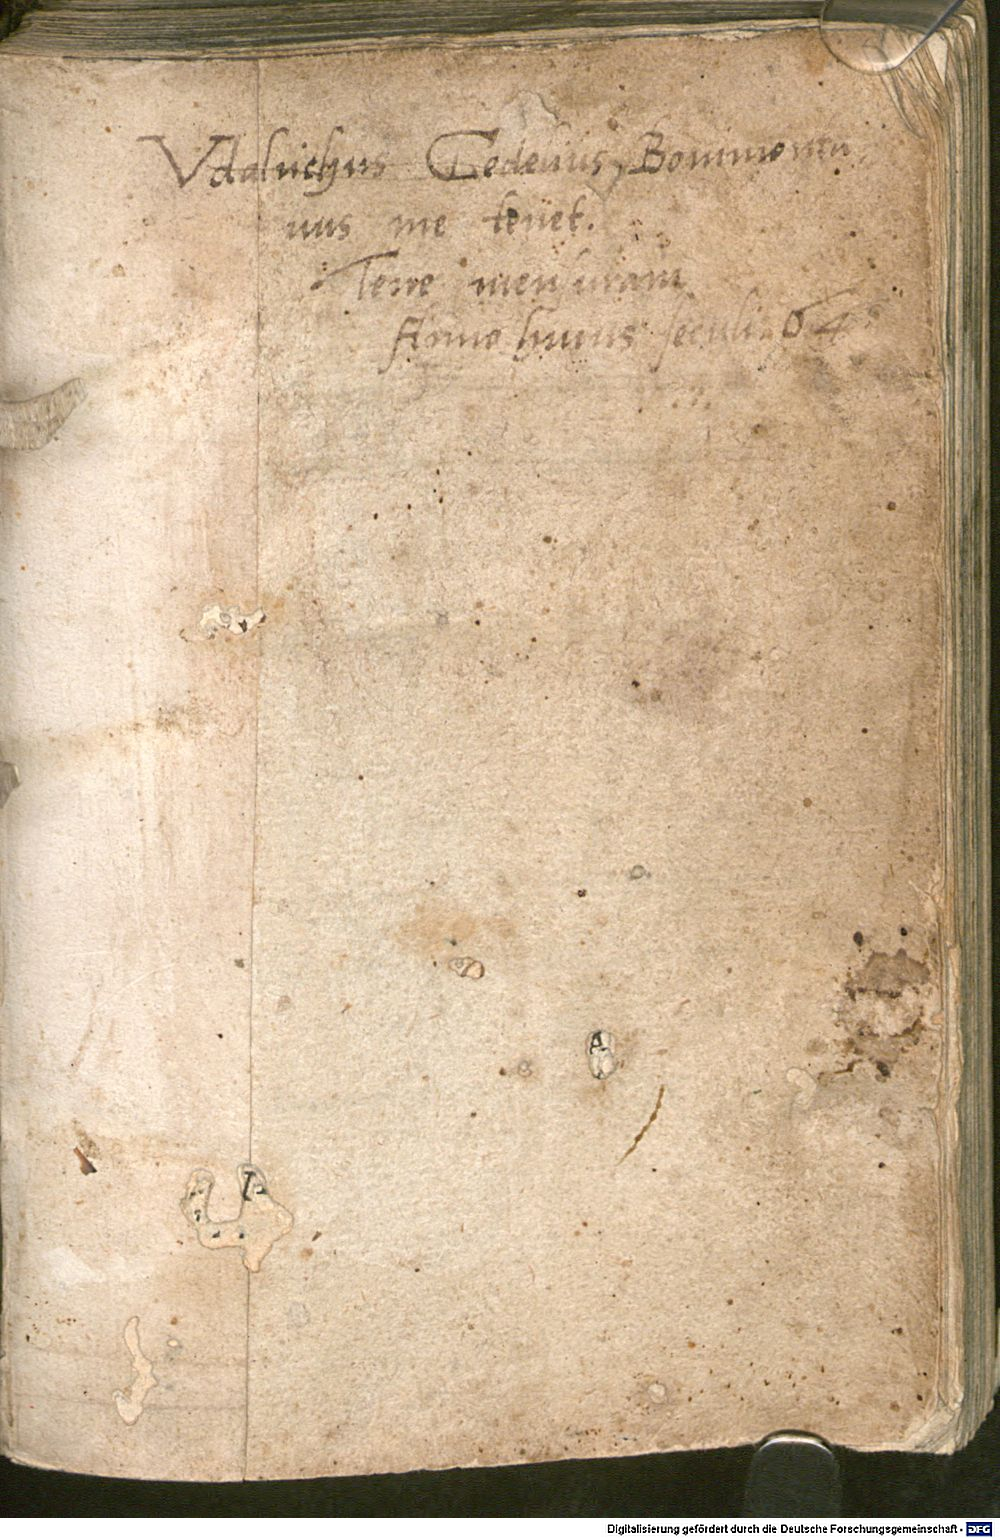 Vdalrichus Gedelius, Bommontu
nus me tenet.
Terre mensuram
Anno huius seculi. 64
Digitalisierung gefördert durch die Deutsche Forschungsgemeinschaft - DFG